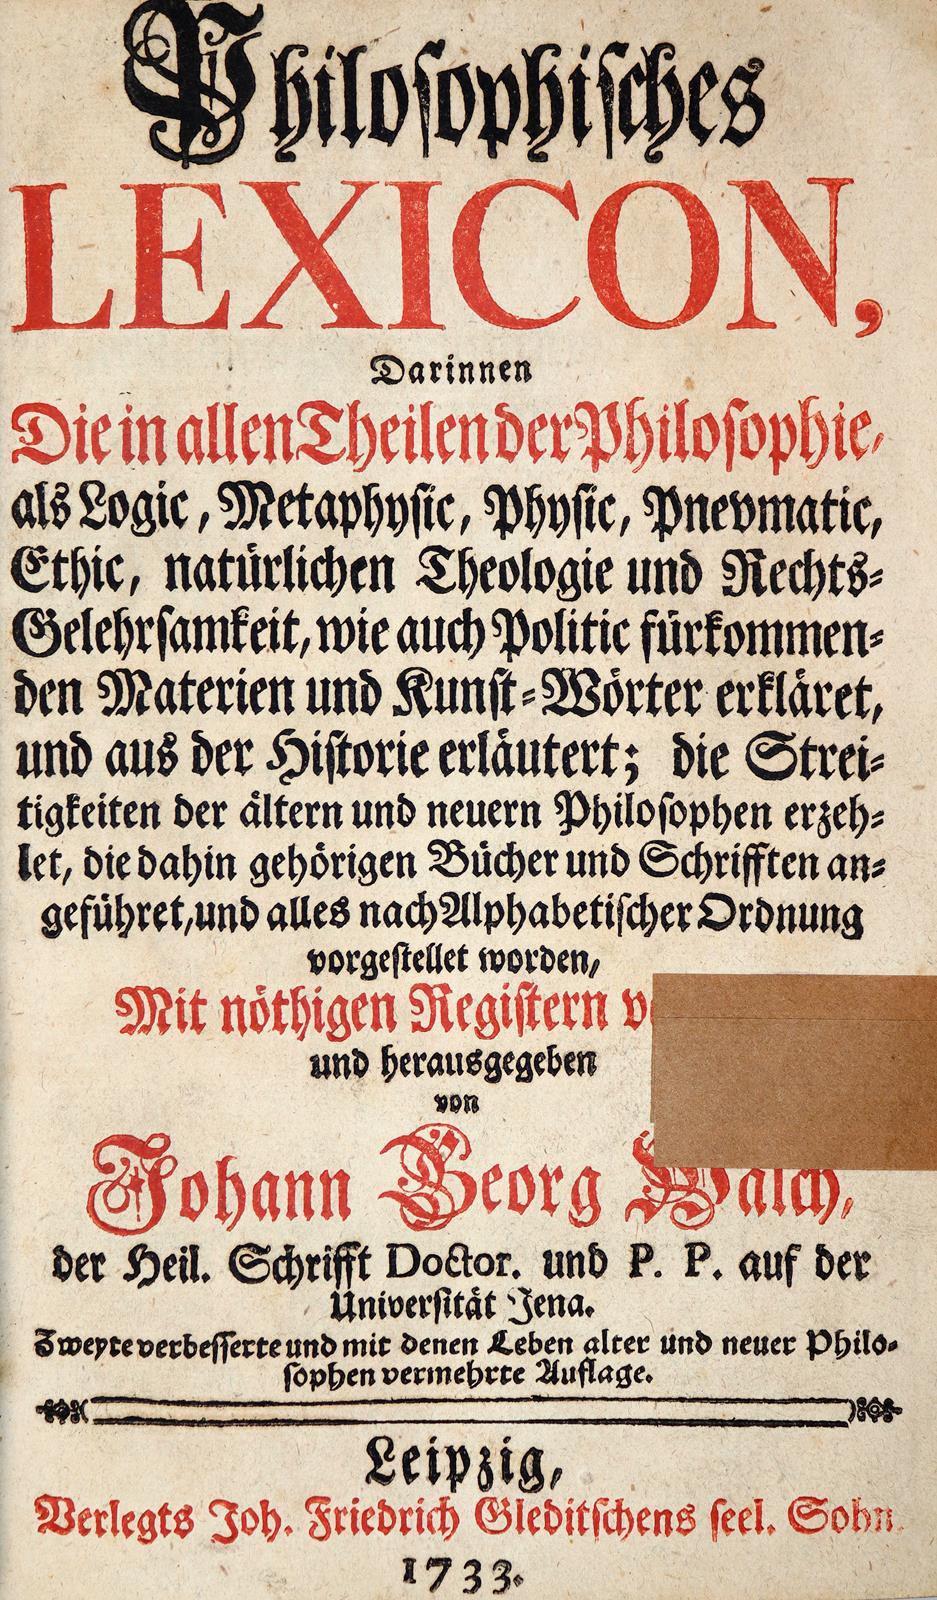 Philosophisches
LEXICON,
Darinnen
Die in allen Theilen der Philosophie,
als Logic, Metaphysic, Physic, Pnevmatic,
Ethic, natürlichen Theologie und Rechts-
Gelehrsamkeit, wie auch Politic fürkommen-
den Materien und Kunst-Wörter erkläret,
und aus der Historie erläutert; die Strei-
tigkeiten der ältern und neuern Philosophen erzeh-
let, die dahin gehörigen Bücher und Schrifften an-
geführet, und alles nach Alphabetischer Ordnung
vorgestellet worden,
Mit nöthigen Registern
und herausgegeben
von
Johann Georg Walch,
der Heil. Schrifft Doctor. und P. P. auf der
Universität Jena.
Zweyte verbesserte und mit denen Leben alter und neuer Philo-
sophen vermehrte Auflage.
Leipzig,
Verlegts Joh. Friedrich Gleditschens seel. Sohn.
1733.